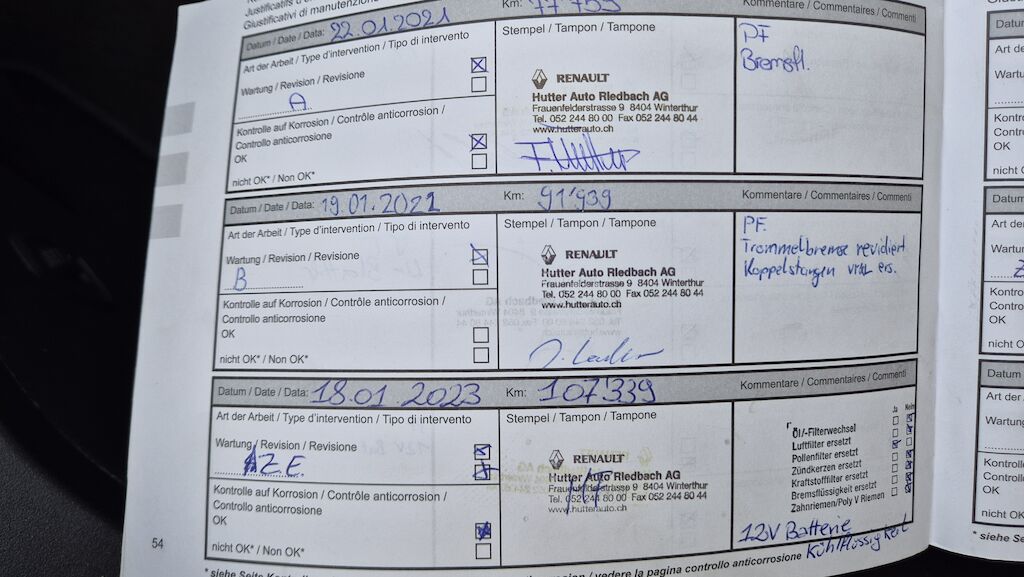 Giustificativi di manutenzione
Datum / Date / Data: 22.01.2021
Km: 77'753
Kommentare / Commentaires / Commenti
Art der Arbeit / Type d'intervention / Tipo di intervento
Wartung / Revision / Revisione
A
Kontrolle auf Korrosion / Contrôle anticorrosion /
Controllo anticorrosione
OK
nicht OK* / Non OK*
Stempel / Tampon / Tampone
RENAULT
Hutter Auto Riedbach AG
Frauenfelderstrasse 9 8404 Winterthur
Tel. 052 244 80 00 Fax 052 244 80 44
www.hutterauto.ch
PF
Bremsfl.
Datum / Date / Data: 19.01.2021
Km: 91'939
Kommentare / Commentaires / Commenti
Art der Arbeit / Type d'intervention / Tipo di intervento
Wartung / Revision / Revisione
B
Kontrolle auf Korrosion / Contrôle anticorrosion /
Controllo anticorrosione
OK
nicht OK* / Non OK*
Stempel / Tampon / Tampone
RENAULT
Hutter Auto Riedbach AG
Frauenfelderstrasse 9 8404 Winterthur
Tel. 052 244 80 00 Fax 052 244 80 44
www.hutterauto.ch
PF.
Trommelbremse revidiert
Koppelstangen ers.
Datum / Date / Data: 18.01.2023
Km: 107'339
Kommentare / Commentaires / Commenti
Art der Arbeit / Type d'intervention / Tipo di intervento
Wartung / Revision / Revisione
ZE
Kontrolle auf Korrosion / Contrôle anticorrosion /
Controllo anticorrosione
OK
nicht OK* / Non OK*
Stempel / Tampon / Tampone
RENAULT
Hutter Auto Riedbach AG
Frauenfelderstrasse 9 8404 Winterthur
Tel. 052 244 80 00 Fax 052 244 80 44
www.hutterauto.ch
Ja Nein
Öl-/Filterwechsel
Luftfilter ersetzt
Pollenfilter ersetzt
Zündkerzen ersetzt
Kraftstoffilter ersetzt
Bremsflüssigkeit ersetzt
Zahnriemen/Poly V Riemen
12V Batterie
Kühlflüssigkeit
54
/ vedere la pagina controllo anticorrosione